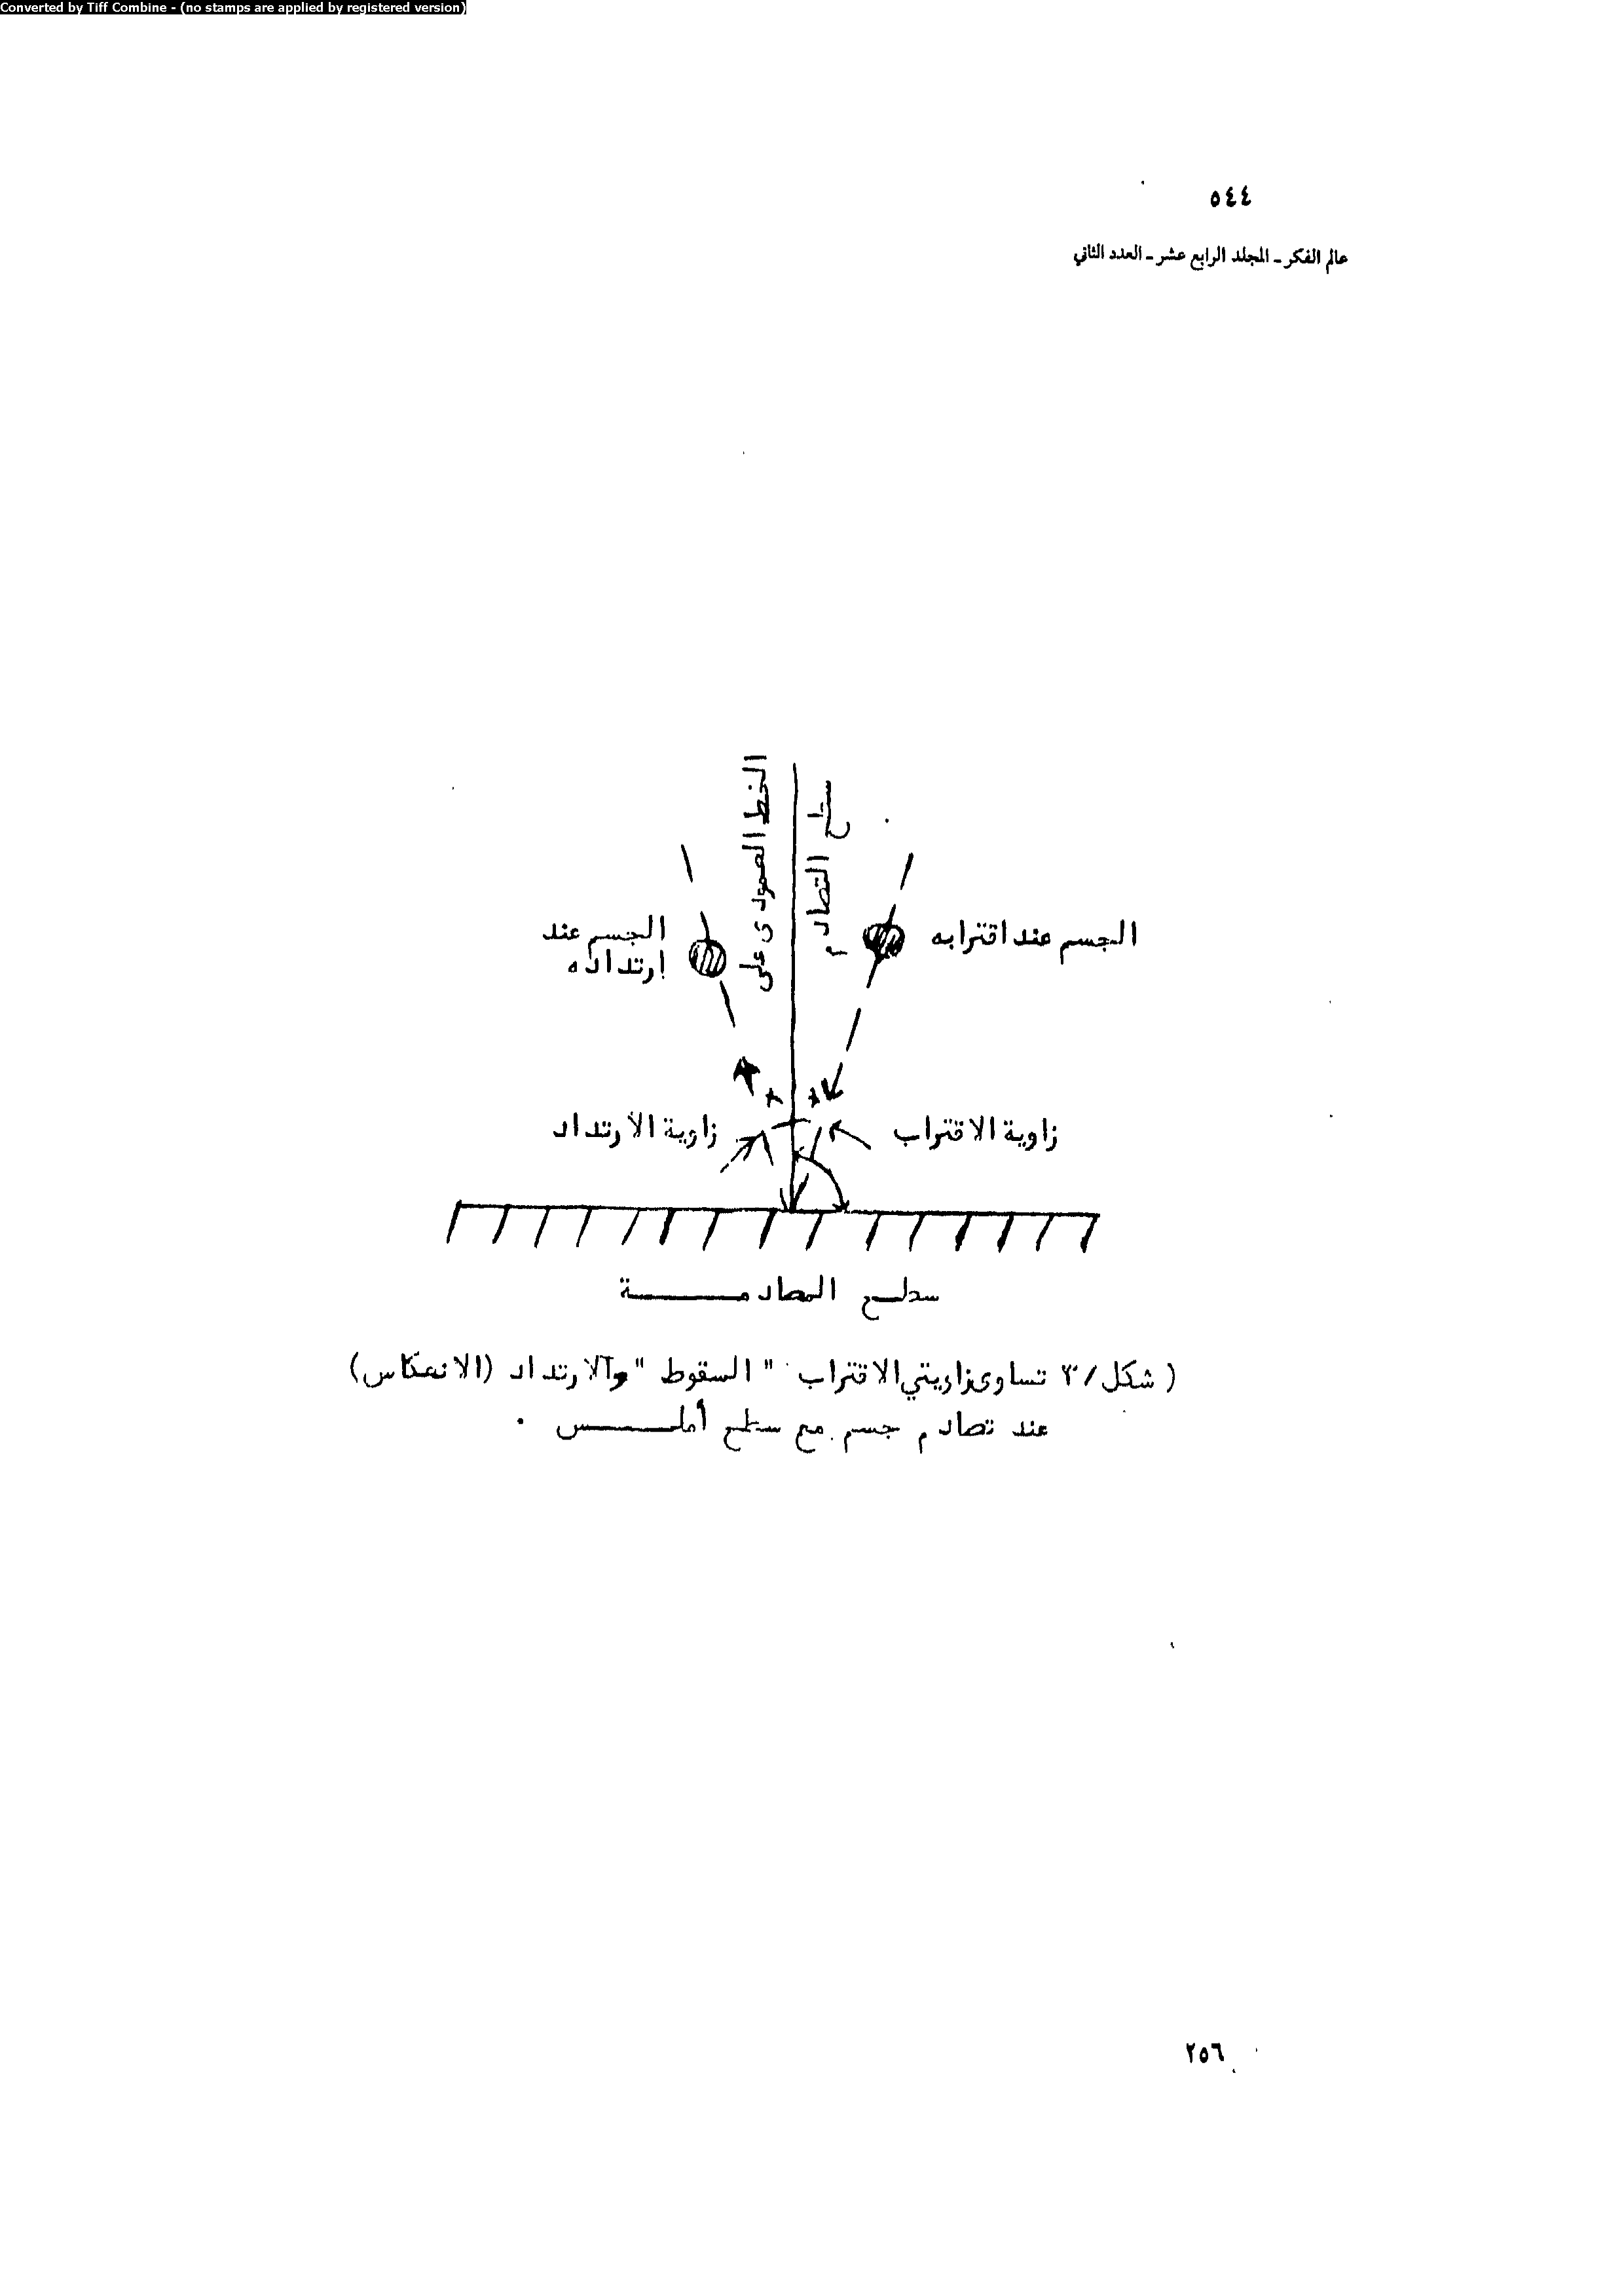 Converted by Tiff Combine - (no stamps are applied by registered version)
٥٤٤
عالم الفكر - المجلد الرابع عشر - العدد الثاني
الخط العمودى على
سطح التصادم
الجسم عند اقترابه
الجسم عند
ارتداده
زاوية الاقتراب
زاوية الارتداد
سطح المصادمة
(شكل/٣ تساوى زاويتي الاقتراب "السقوط" والارتداد (الانعكاس)
عند تصادم جسم مع سطح أملس .
٢٥٦